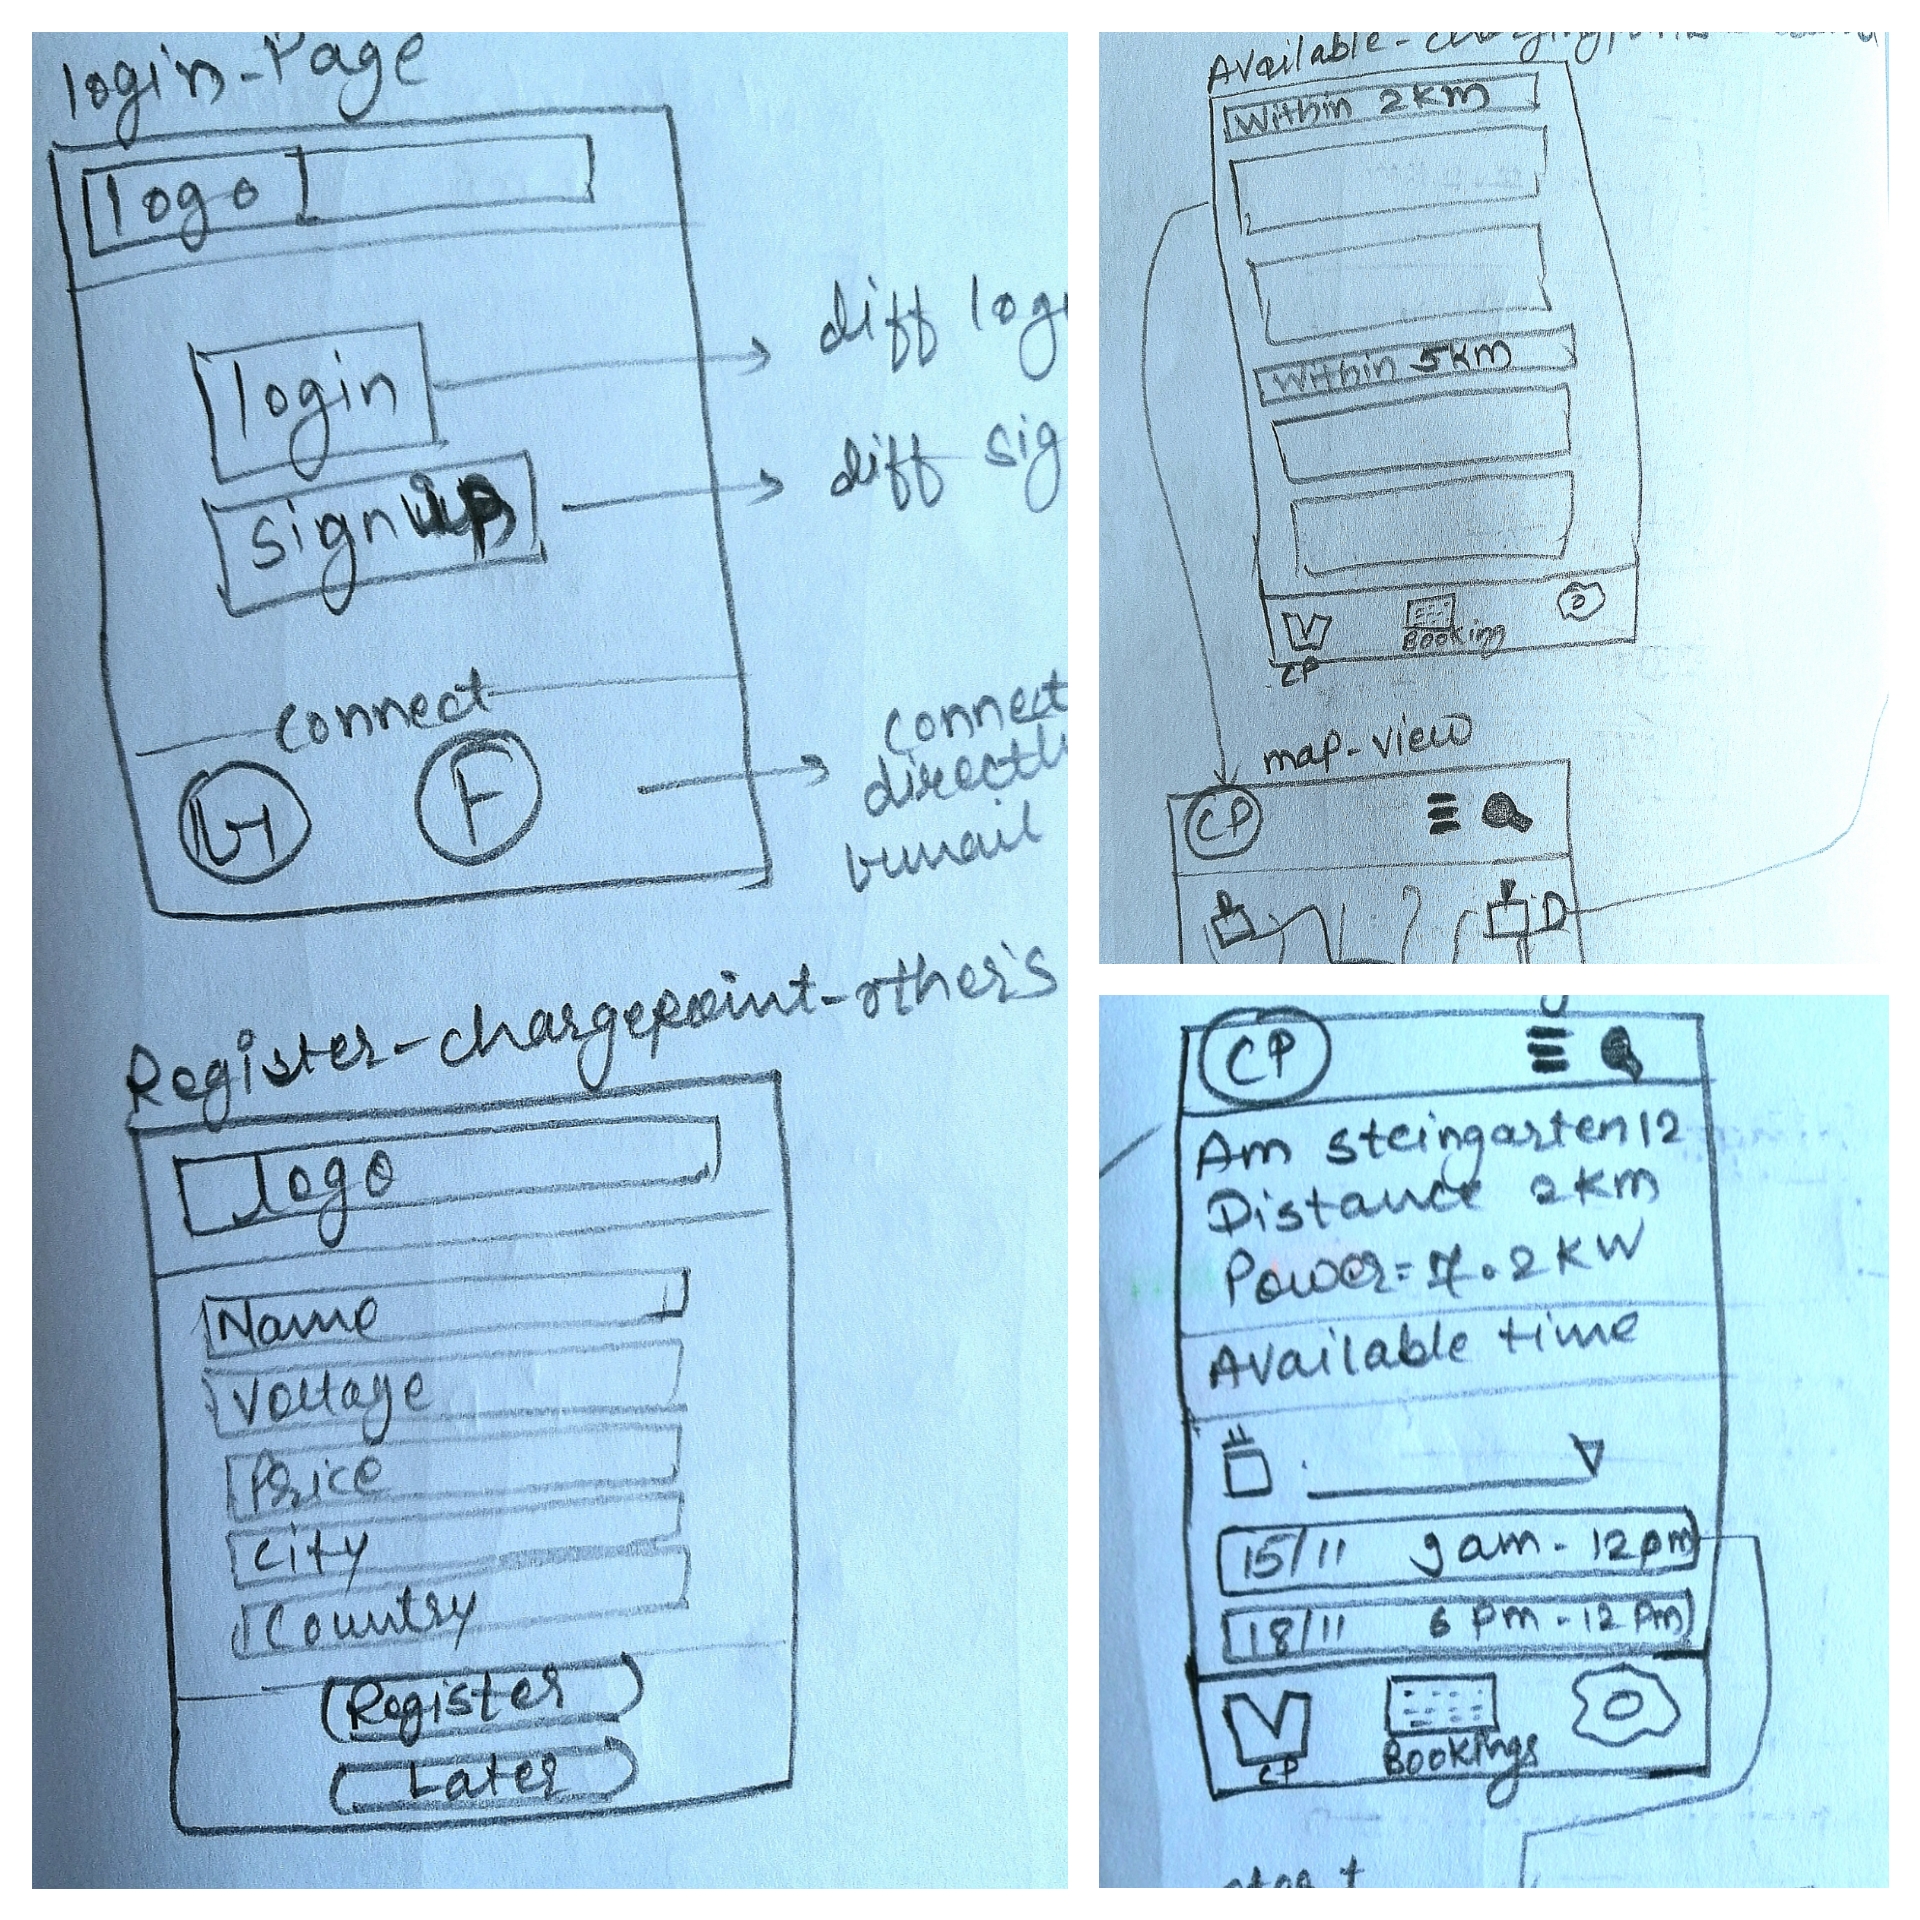 login-Page
logo
login
diff
signup
diff
Connect
G F
connect
directly
Register-chargepoint-other's
logo
Name
Voltage
Price
City
Country
Register
Later
Available-charging
Within 2km
Within 5km
Booking
CP
map-view
CP
CP
Am steingarten 12
Distance 2km
Power=7.2KW
Available time
15/11 9 am - 12pm
18/11 6 Pm - 12 Pm
CP Bookings